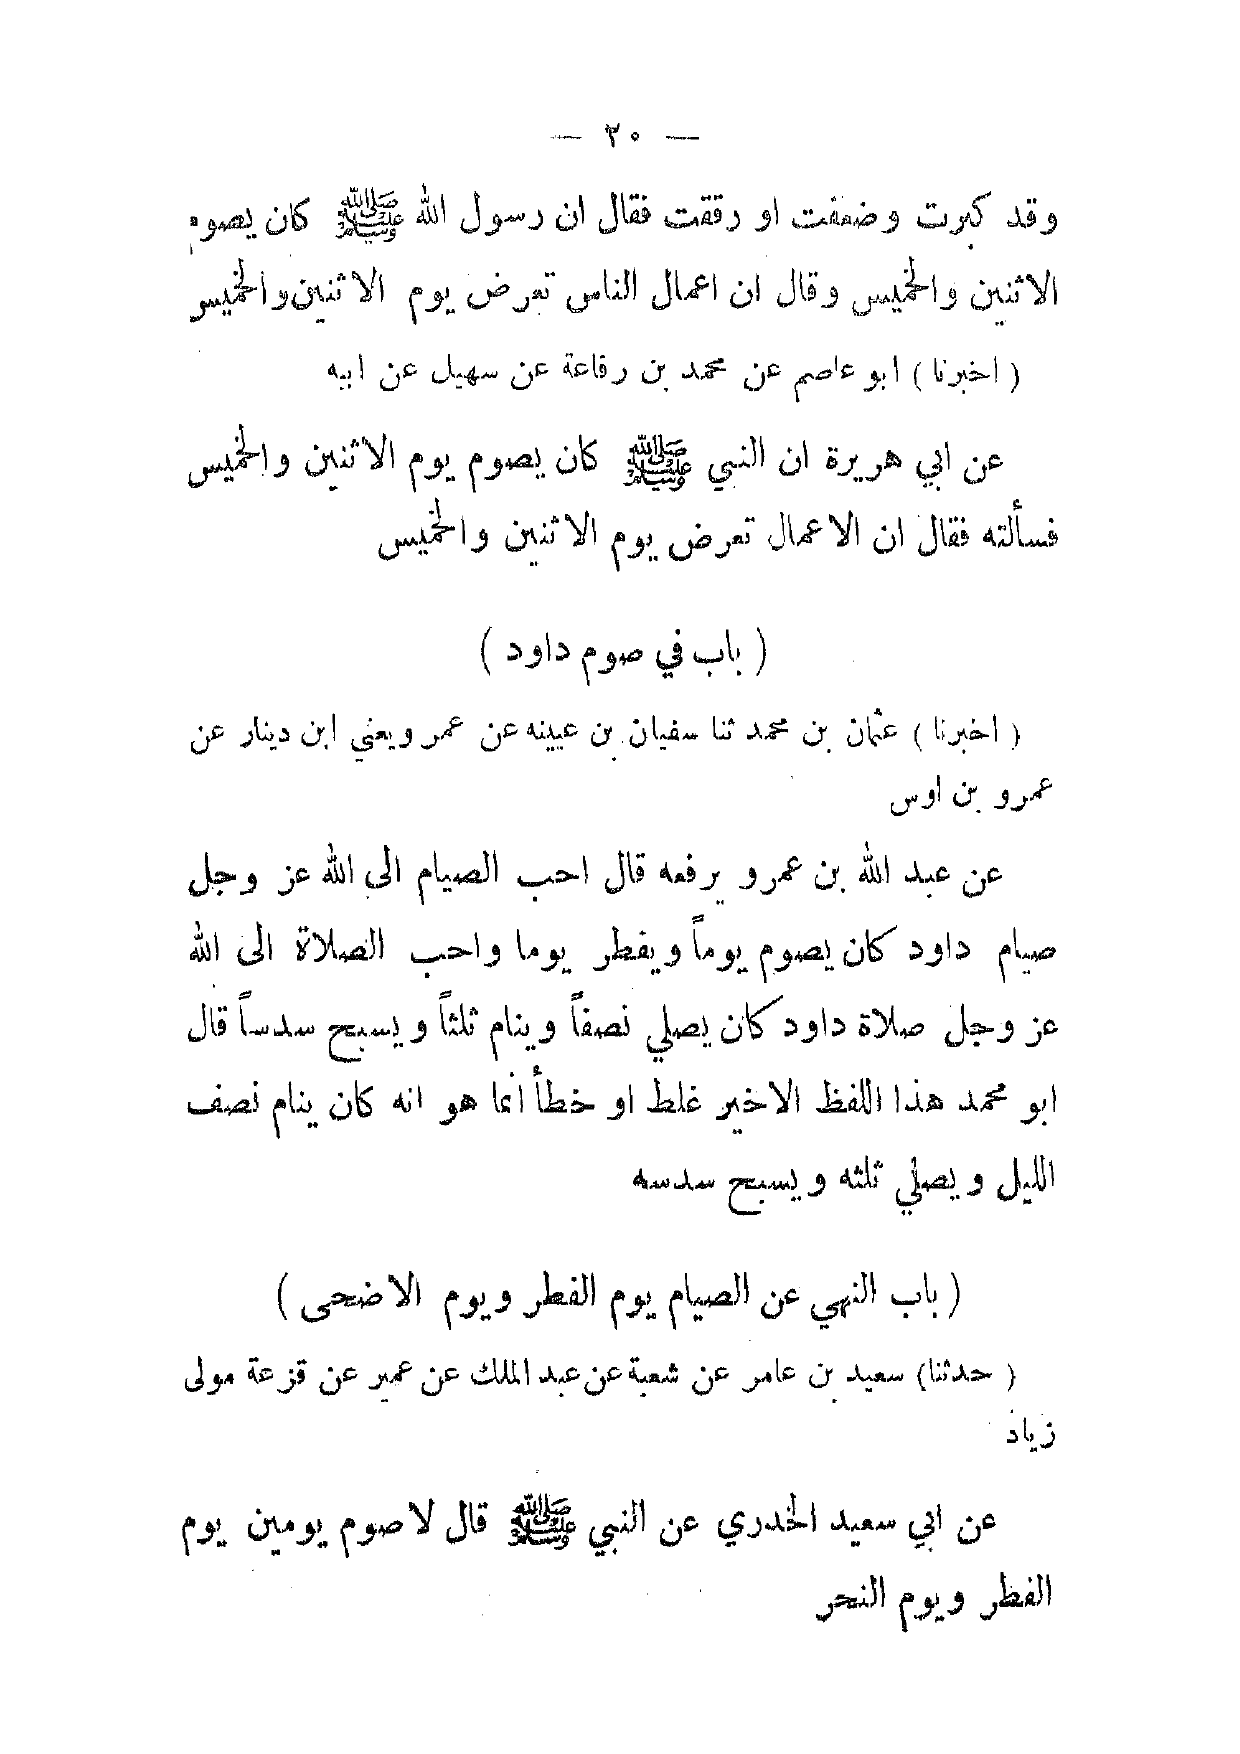 — ٢٠ —
وقد كبرت وضعفت او رققت فقال ان رسول الله ﷺ كان يصوم
الاثنين والخميس وقال ان اعمال الناس تعرض يوم الاثنين والخميس
( اخبرنا ) ابو عاصم عن محمد بن رفاعة عن سهيل عن ابيه
عن ابي هريرة ان النبي ﷺ كان يصوم يوم الاثنين والخميس
فسألته فقال ان الاعمال تعرض يوم الاثنين والخميس
( باب في صوم داود )
( اخبرنا ) عثمان بن محمد ثنا سفيان بن عيينه عن عمر ويعني ابن دينار عن
عمرو بن اوس
عن عبد الله بن عمرو يرفعه قال احب الصيام الى الله عز وجل
صيام داود كان يصوم يوماً ويفطر يوما واحب الصلاة الى الله
عز وجل صلاة داود كان يصلي نصفاً وينام ثلثاً ويسبح سدساً قال
ابو محمد هذا اللفظ الاخير غلط او خطأ انما هو انه كان ينام نصف
الليل ويصلي ثلثه ويسبح سدسه
( باب النهي عن الصيام يوم الفطر ويوم الاضحى )
( حدثنا ) سعيد بن عامر عن شعبة عن عبد الملك عن عمير عن قزعة مولى
زياد
عن ابي سعيد الخدري عن النبي ﷺ قال لا صوم يومين يوم
الفطر ويوم النحر